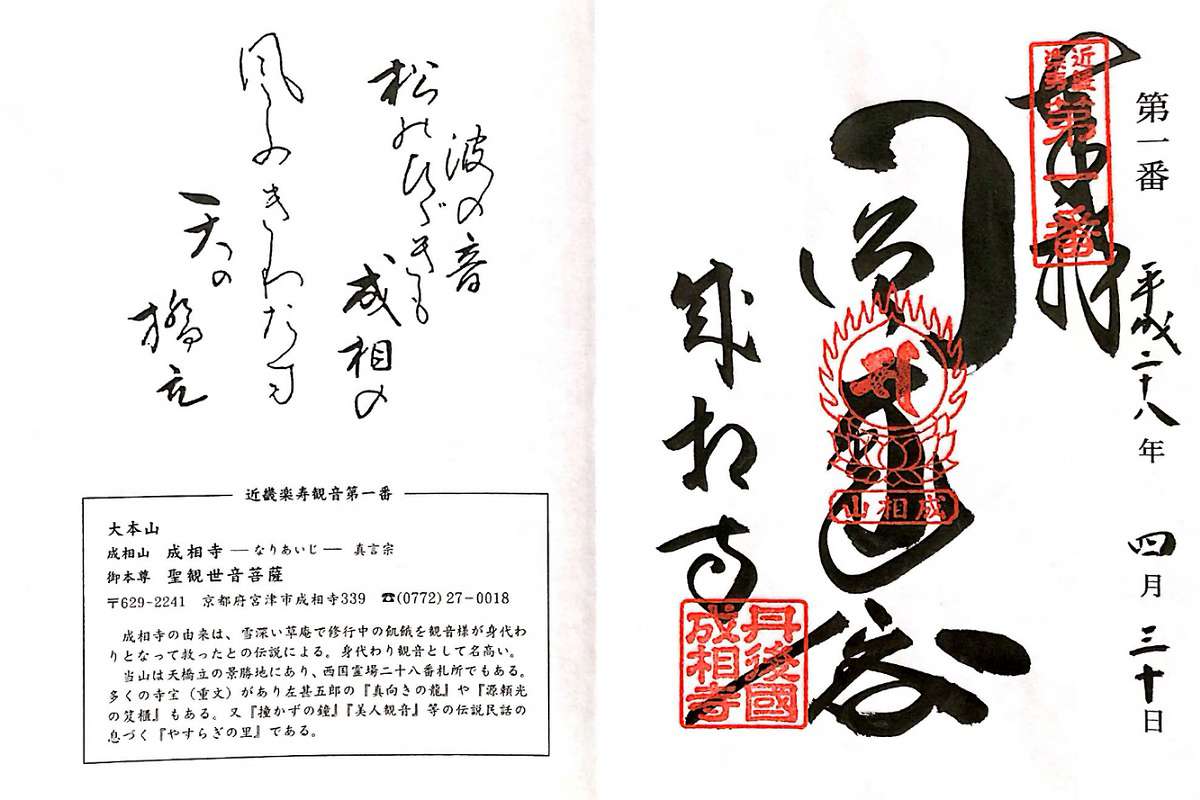 第一番
平成二十八年 四月三十日
近畿楽寿
第一番
成相山
成相寺
丹後國
成相寺
波の音
松のひゞきも
成相の
風ふきわたす
天の
橋立
近畿楽寿観音第一番
大本山
成相山 成相寺 ―なりあいじ― 真言宗
御本尊 聖観世音菩薩
〒629-2241 京都府宮津市成相寺339 ☎(0772)27-0018
成相寺の由来は、雪深い草庵で修行中の飢餓を観音様が身代わ
りとなって救ったとの伝説による。身代わり観音として名高い。
当山は天橋立の景勝地にあり、西国霊場二十八番札所でもある。
多くの寺宝(重文)があり左甚五郎の『真向きの龍』や『源頼光
の笈櫃』もある。又『撞かずの鐘』『美人観音』等の伝説民話の
息づく『やすらぎの里』である。